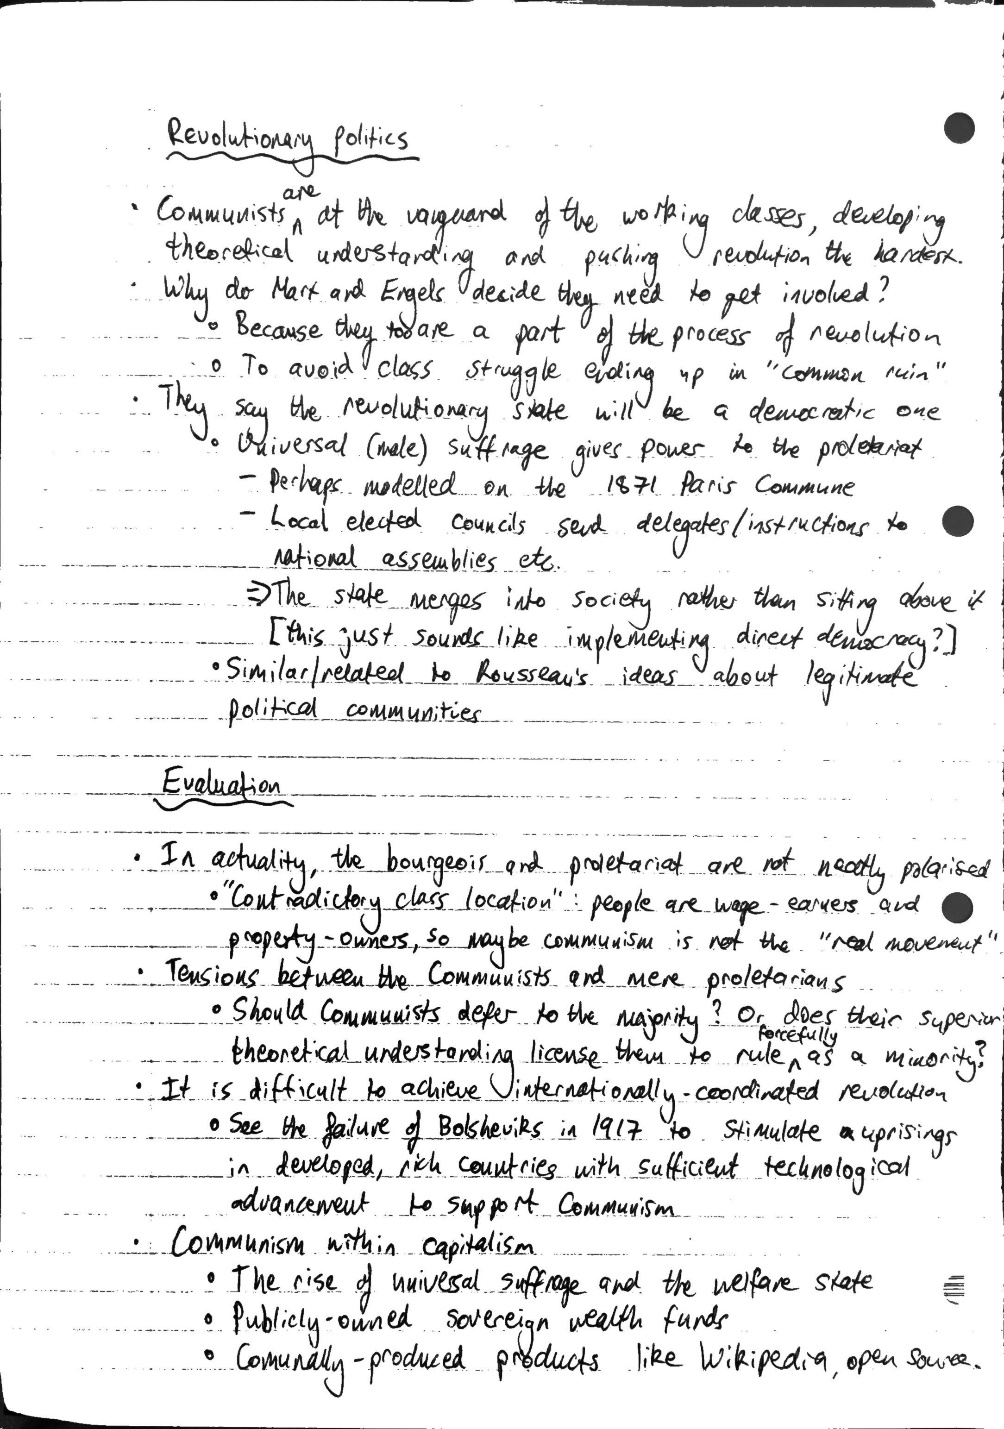 Revolutionary politics
• Communists are at the vanguard of the working classes, developing
theoretical understanding and pushing revolution the hardest.
• Why do Marx and Engels decide they need to get involved?
o Because they too are a part of the process of revolution
o To avoid class struggle ending up in "common ruin"
• They say the revolutionary state will be a democratic one
o Universal (male) suffrage gives power to the proletariat
- Perhaps modelled on the 1871 Paris Commune
- Local elected councils send delegates/instructions to
national assemblies etc.
⇒ The state merges into society rather than sitting above it
[this just sounds like implementing direct democracy?]
• Similar/related to Rousseau's ideas about legitimate
political communities
Evaluation
• In actuality, the bourgeois and proletariat are not neatly polarised
• "Contradictory class location": people are wage-earners and
property-owners, so maybe communism is not the "real movement"
• Tensions between the Communists and mere proletarians
• Should Communists defer to the majority? Or does their superior
theoretical understanding license them to rule forcefully as a minority?
• It is difficult to achieve internationally-coordinated revolution
• See the failure of Bolsheviks in 1917 to stimulate uprisings
in developed, rich countries with sufficient technological
advancement to support Communism
• Communism within capitalism
• The rise of universal suffrage and the welfare state
• Publicly-owned sovereign wealth funds
• Comunally-produced products like Wikipedia, open source.